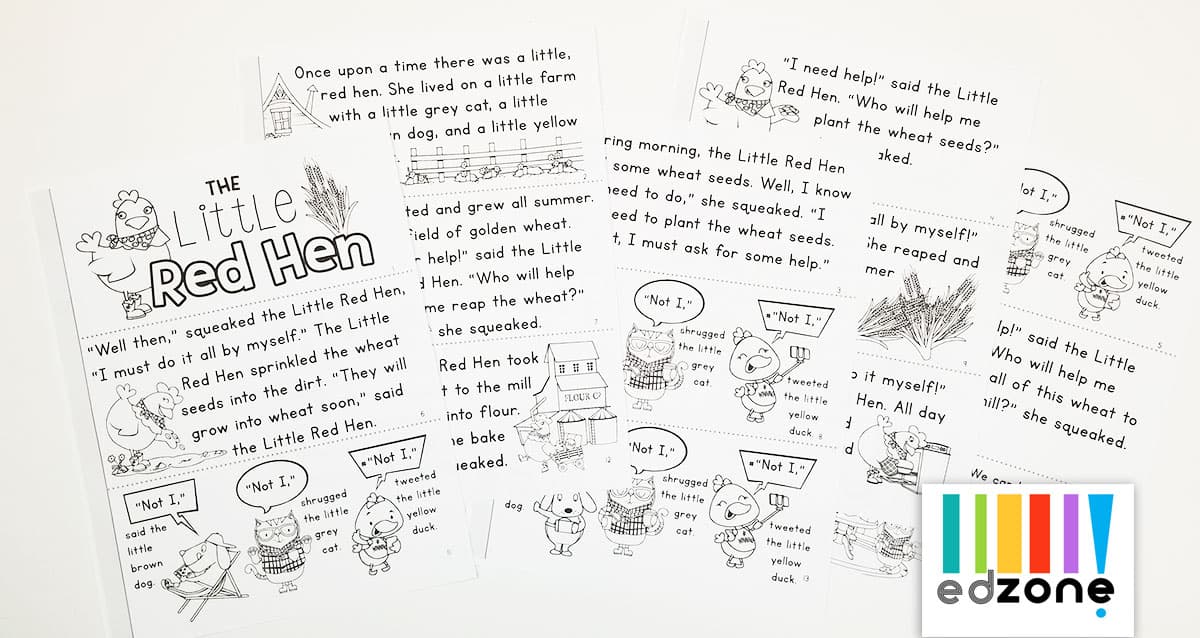 THE
Little
Red Hen
"Well then," squeaked the Little Red Hen,
"I must do it all by myself." The Little
Red Hen sprinkled the wheat
seeds into the dirt. "They will
grow into wheat soon," said
the Little Red Hen.
6
"Not I,"
said the
little
brown
dog.
"Not I,"
shrugged
the little
grey
cat.
"Not I,"
tweeted
the little
yellow
duck.
8
Once upon a time there was a little,
red hen. She lived on a little farm
with a little grey cat, a little
n dog, and a little yellow
ted and grew all summer.
field of golden wheat.
help!" said the Little
d Hen. "Who will help
me reap the wheat?"
she squeaked.
7
Red Hen took
t to the mill
into flour.
bake
eaked.
FLOUR CO
dog
ring morning, the Little Red Hen
some wheat seeds. Well, I know
need to do," she squeaked. "I
eed to plant the wheat seeds.
t, I must ask for some help."
3
"Not I,"
shrugged
the little
grey
cat.
"Not I,"
tweeted
the little
yellow
duck.
8
"Not I,"
shrugged
the little
grey
cat.
"Not I,"
tweeted
the little
yellow
duck.
13
"I need help!" said the Little
Red Hen. "Who will help me
plant the wheat seeds?"
aked.
4
all by myself!"
She reaped and
mer
9
it myself!"
Hen. All day
d
d
Not I,"
shrugged
the little
grey
cat.
"Not I,"
tweeted
the little
yellow
duck.
5
lp!" said the Little
Who will help me
all of this wheat to
mill?" she squeaked.
We can
edzone